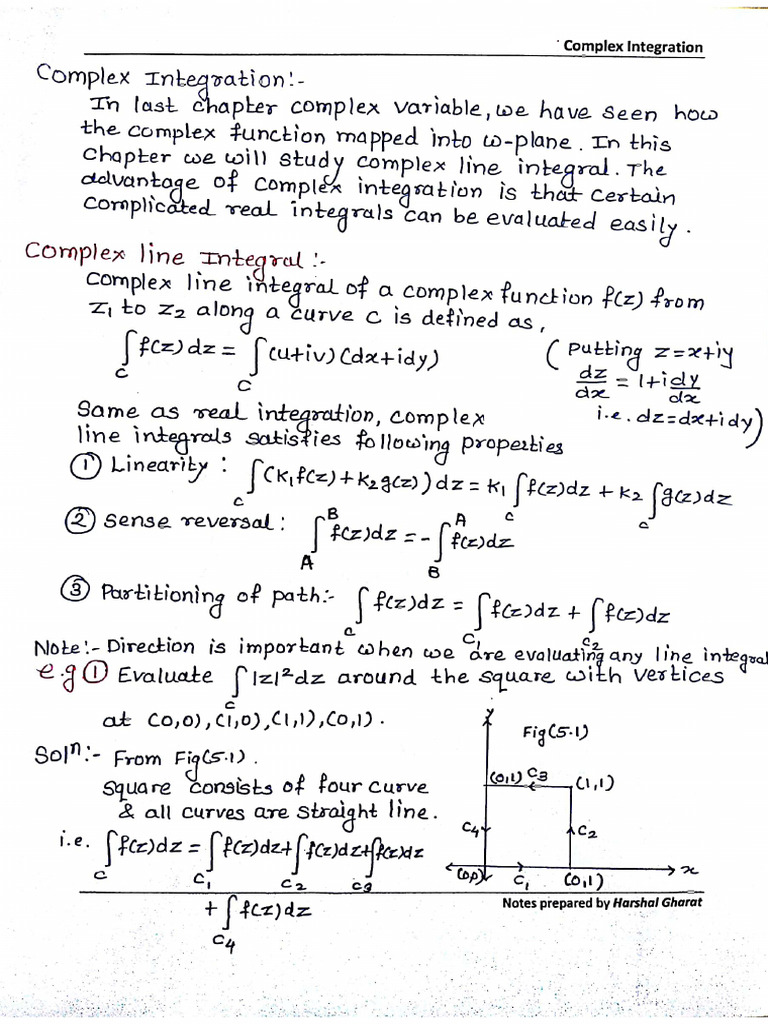 Complex Integration
Complex Integration:-
In last chapter complex variable, we have seen how
the complex function mapped into w-plane. In this
Chapter we will study complex line integral. The
advantage of complex integration is that certain
complicated real integrals can be evaluated easily.
Complex line Integral:-
Complex line integral of a complex function f(z) from
z₁ to z₂ along a curve c is defined as,
∫c f(z)dz = ∫c (u+iv)(dx+idy) (Putting z=x+iy
dz/dx = 1+i dy/dx
i.e. dz=dx+idy)
Same as real integration, complex
line integrals satisfies following properties
① Linearity: ∫c (k₁f(z)+k₂g(z))dz = k₁∫c f(z)dz + k₂∫c g(z)dz
② Sense reversal: ∫_A^B f(z)dz = -∫_B^A f(z)dz
③ Partitioning of path:- ∫c f(z)dz = ∫c₁ f(z)dz + ∫c₂ f(z)dz
Note:- Direction is important when we are evaluating any line integral
e.g ① Evaluate ∫c |z|²dz around the square with vertices
at (0,0),(1,0),(1,1),(0,1).
Solⁿ:- From Fig(5.1).
Square consists of four curve
& all curves are straight line.
i.e. ∫c f(z)dz = ∫c₁ f(z)dz + ∫c₂ f(z)dz + ∫c₃ f(z)dz
+ ∫c₄ f(z)dz
y
Fig(5.1)
(0,1) C3 (1,1)
C4 C2
(0,0) C1 (0,1) x
Notes prepared by Harshal Gharat